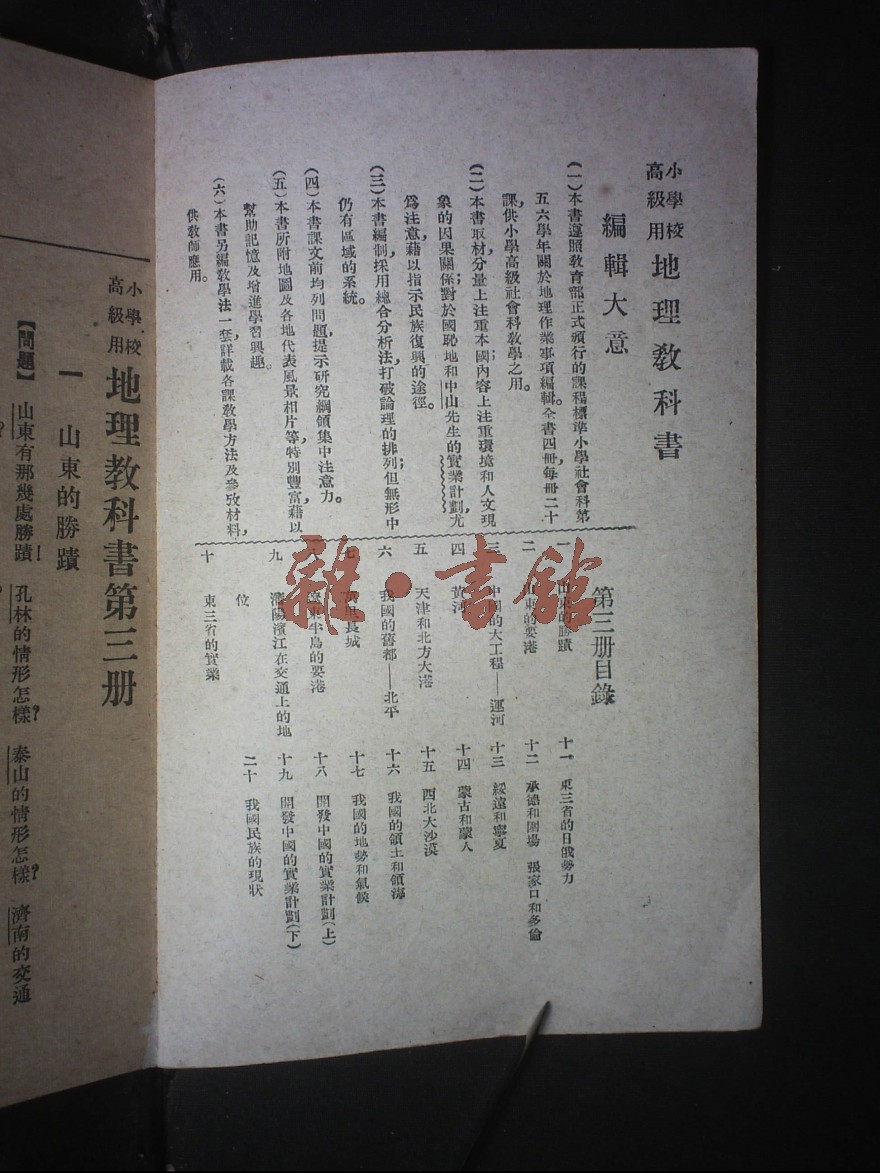 小學校高級用 地理教科書
編輯大意
(一)本書遵照教育部正式頒行的課程標準小學社會科第
五六學年關於地理作業事項編輯,全書四冊,每冊二十
課,供小學高級社會科教學之用。
(二)本書取材分量上注重本國,內容上注重環境和人文現
象的因果關係;對於國恥地和中山先生的實業計劃尤
爲注意,藉以指示民族復興的途徑。
(三)本書編制採用總合分析法,打破論理的排列;但無形中
仍有區域的系統。
(四)本書課文前均列問題,提示研究綱領集中注意力。
(五)本書所附地圖及各地代表風景相片等,特別豐富,藉以
幫助記憶及增進學習興趣。
(六)本書另編教學法一套,詳載各課教學方法及參攷材料,
供教師應用。
第三册目錄
一 山東的勝蹟
二 山東的要港
三 中國的大工程——運河
四 黃河
五 天津和北方大港
六 我國的舊都——北平
七 長城
八 遼東半島的要港
九 瀋陽濱江在交通上的地
位
十 東三省的實業
十一 東三省的日俄勢力
十二 承德和圍場 張家口和多倫
十三 綏遠和寧夏
十四 蒙古和蒙人
十五 西北大沙漠
十六 我國的領土和領海
十七 我國的地勢和氣候
十八 開發中國的實業計劃(上)
十九 開發中國的實業計劃(下)
二十 我國民族的現狀
小學校高級用 地理教科書第三册
一 山東的勝蹟
【問題】 山東有那幾處勝蹟! 孔林的情形怎樣? 泰山的情形怎樣? 濟南的交通
雜·書館